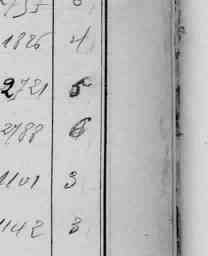 1826 4
2721 5
2188 6
1101 3
1142 3